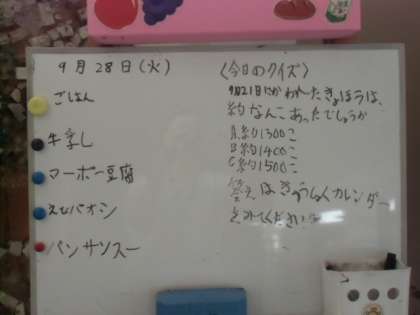 9月28日(火)
ごはん
牛乳し
マーボー豆腐
えびパオシ
バンサンスー
〈今日のクイズ〉
9月21日につかわれたきょほうは、
約なんこあったでしょうか
A.約1300こ
B.約1400こ
C.約1500こ
答えはきゅうしょくカレンダー
をみてください